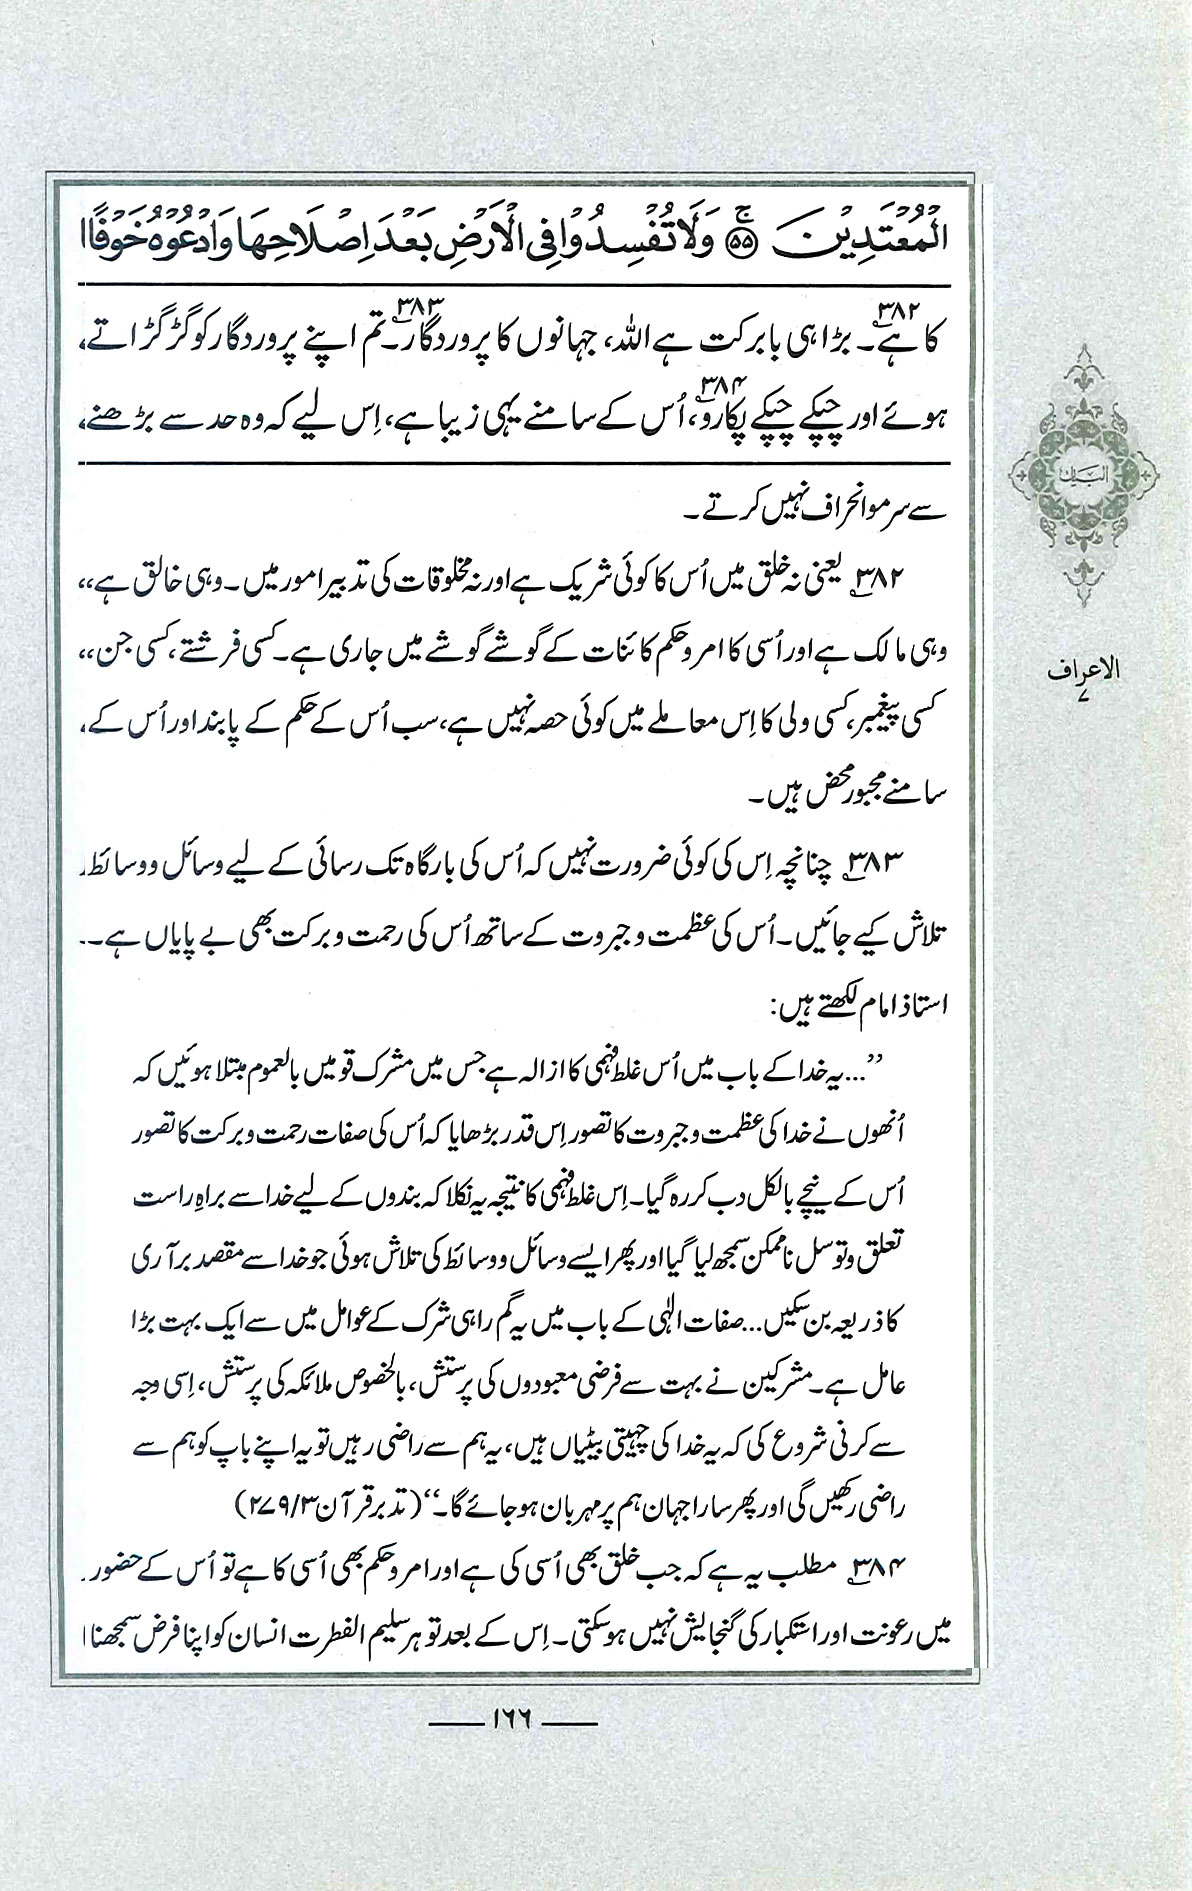 الْمُعْتَدِيْنَ ﴿۵۵﴾ۚ وَلَا تُفْسِدُوْا فِی الْاَرْضِ بَعْدَ اِصْلَاحِهَا وَادْعُوْهُ خَوْفًا
کا ہے۔۳۸۲ بڑا ہی بابرکت ہے اللہ، جہانوں کا پروردگار۔۳۸۳ تم اپنے پروردگار کو گڑگڑاتے
ہوئے اور چپکے چپکے پکارو،۳۸۴ اُس کے سامنے یہی زیبا ہے، اِس لیے کہ وہ حد سے بڑھنے
سے سرمو انحراف نہیں کرتے۔
۳۸۲ یعنی نہ خلق میں اُس کا کوئی شریک ہے اور نہ مخلوقات کی تدبیر امور میں۔ وہی خالق ہے،
وہی مالک ہے اور اُسی کا امر و حکم کائنات کے گوشے گوشے میں جاری ہے۔ کسی فرشتے، کسی جن،
کسی پیغمبر، کسی ولی کا اِس معاملے میں کوئی حصہ نہیں ہے، سب اُس کے حکم کے پابند اور اُس کے
سامنے مجبور محض ہیں۔
۳۸۳ چنانچہ اِس کی کوئی ضرورت نہیں کہ اُس کی بارگاہ تک رسائی کے لیے وسائل و وسائط
تلاش کیے جائیں۔ اُس کی عظمت و جبروت کے ساتھ اُس کی رحمت و برکت بھی بے پایاں ہے۔
استاذ امام لکھتے ہیں:
’’...یہ خدا کے باب میں اُس غلط فہمی کا ازالہ ہے جس میں مشرک قومیں بالعموم مبتلا ہوئیں کہ
اُنھوں نے خدا کی عظمت و جبروت کا تصور اِس قدر بڑھایا کہ اُس کی صفات رحمت و برکت کا تصور
اُس کے نیچے بالکل دب کر رہ گیا۔ اِس غلط فہمی کا نتیجہ یہ نکلا کہ بندوں کے لیے خدا سے براہِ راست
تعلق و توسل ناممکن سمجھ لیا گیا اور پھر ایسے وسائل و وسائط کی تلاش ہوئی جو خدا سے مقصد برآری
کا ذریعہ بن سکیں...صفات الٰہی کے باب میں یہ گم راہی شرک کے عوامل میں سے ایک بہت بڑا
عامل ہے۔ مشرکین نے بہت سے فرضی معبودوں کی پرستش، بالخصوص ملائکہ کی پرستش، اِسی وجہ
سے کرنی شروع کی کہ یہ خدا کی چہیتی بیٹیاں ہیں، یہ ہم سے راضی رہیں تو یہ اپنے باپ کو ہم سے
راضی رکھیں گی اور پھر سارا جہان ہم پر مہربان ہو جائے گا۔‘‘ (تدبر قرآن ۳/ ۲۷۹)
۳۸۴ مطلب یہ ہے کہ جب خلق بھی اُسی کی ہے اور امر و حکم بھی اُسی کا ہے تو اُس کے حضور
میں رعونت اور استکبار کی گنجایش نہیں ہو سکتی۔ اِس کے بعد تو ہر سلیم الفطرت انسان کو اپنا فرض سمجھنا
البیان
الاعراف
۷
۱۶۶